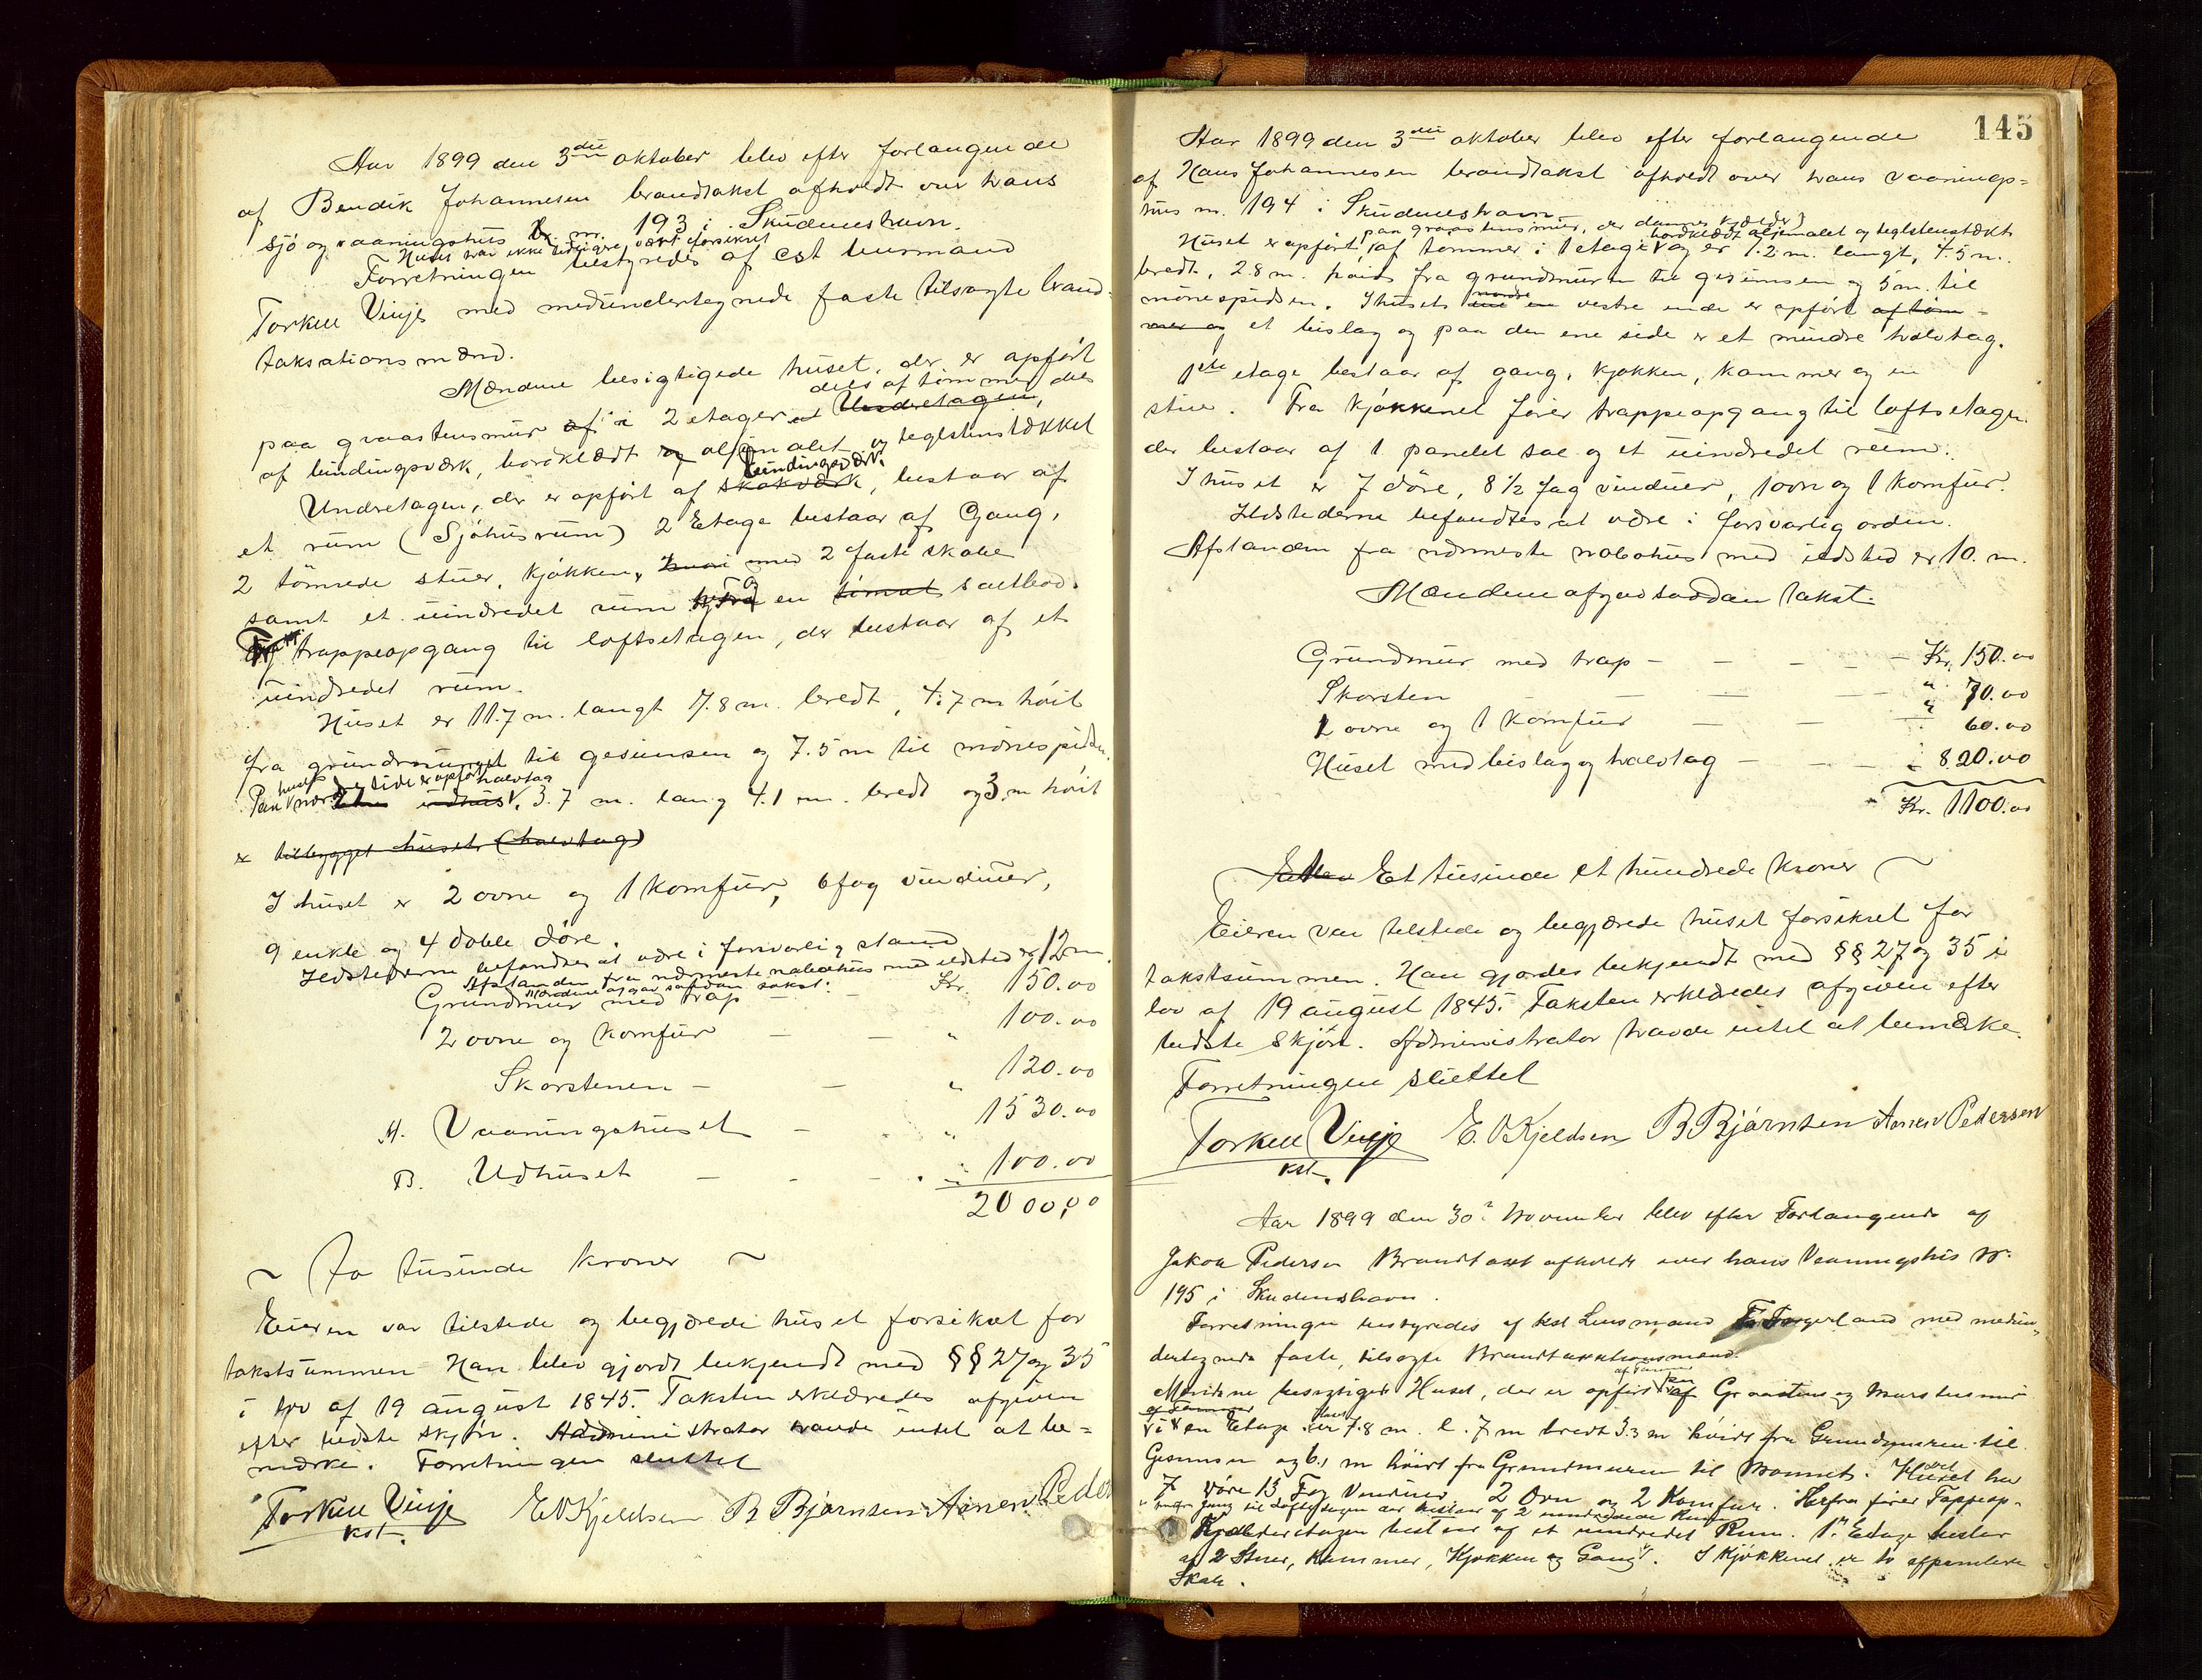 Aar 1899 den 3die oktober blev efter forlangende
af Bendik Johannesen brandtakst afholdt over hans
sjö og vaaningshus br. nr. 193 i Skudeneshavn.
Huset var ikke tidligere vært forsikret
Forretningen bestyredes af cst lensmand
Torkell Vinje med medundertegnede faste tilsagte brand-
taksationsmænd.
Mændene besigtigede huset, der er opfört
paa graastensmur af i 2 etager Underetagen, dels af tömmer dels
af bindingsværk, bordklædt og oljemalet og teglstenstækket
Underetagen, der er opfört af skakværk bindingsværk, bestaar af
et rum (Sjöhusrum) 2 Etage bestaar af Gang,
2 tömrede stuer, kjökken, med 2 faste skabe
samt et uindredet rum og en tömret saltbod.
trappeopgang til loftsetagen, der bestaar af et
uindredet rum.
Huset er 11.7 m. langt 7.8 m. bredt, 4.7 m höit
fra grundmuren til gesimsen og 7.5 m til mönespidsen.
Paa husets nordre side er opfört halvtag udhus, 3.7 m. lang 4.1 m. bredt og 3 m höit
er tilbygget huset (halvtag)
I huset er 2 ovne og 1 komfur, 6 fag vinduer,
9 enkle og 4 doble döre.
Ildstederne befandtes at være i forsvarlig stand
Afstanden fra nærmeste nabohus med ildsted er 12 m.
Mændene afgav saadan takst:
Grundmur med trap - - Kr. 150.00
2 ovne og komfur - - " 100.00
Skorstenen - - " 120.00
A. Vaaningshuset - - " 1530.00
B. Udhuset - - - " 100.00
2000,00
~ To tusinde kroner ~
Eieren var tilstede og begjærede huset forsikret for
takstsummen Han blev gjordt bekjendt med §§ 27 og 35
i lov af 19 august 1845. Taksten erklæredes afgiven
efter bedste skjön. Administrator havde intet at be=
mærke. Forretningen sluttet
Torkell Vinje E. O Kjeldsen B Bjørnsen Asser Peder
kst.
145
Aar 1899 den 3die oktober blev efter forlangende
af Hans Johannesen brandtakst afholdt over hans vaanings=
hus nr. 194 i Skudeneshavn.
paa graastensmur, der danner kjælder, bordklædt oljemalet og teglstenstækt
Huset er opfört, af tömmer i 1 etage og er 7.2 m. langt, 4.5 m.
bredt, 2.8 m. höit fra grundmuren til gesimsen og 5 m. til
mönespidsen. I husets nordre vestre ende er opfört af töm-
mer og et bislag og paa den ene side er et mindre halvtag.
1ste etage bestaar af gang, kjøkken, kammer og en
stue. Fra kjökkenet förer trappeopgang til loftsetagen
der bestaar af 1 panelet sal og et uindredet rum.
I huset er 7 döre, 8 1/2 fag vinduer, 1 ovn og 1 komfur.
Ildstederne befandtes at være i forsvarlig orden.
Afstanden fra nærmeste nabohus med ildsted er 10. m.
Mændene afgav saadan takst.
Grundmur med trap - - - - Kr. 150.00
Skorsten - - - " 70.00
1 ovne og 1 komfur - - - " 60.00
Huset med bislag og halvtag - - " 820.00
Kr. 1100.00
Et tusinde et hundrede kroner ~
Eieren var tilstede og begjærede huset forsikret for
takstsummen. Han gjordes bekjendt med §§ 27 og 35 i
lov af 19 august 1845. Taksten erklæredes afgiven efter
bedste skjön. Administrator havde intet at bemærke.
Forretningen sluttet
Torkell Vinje E. O Kjeldsen B Bjørnsen Asser Pedersen
kst.
Aar 1899 den 30. November blev efter Forlangende af
Jakob Pedersen Brandtaxt afholdt over hans Vaaningshus Nr.
195 i Skudeneshavn.
Forretningen bestyredes af kst Lensmand med medun-
dertegnede faste, tilsagte Brandtaxationsmænd.
Mændene besigtigede Huset, der er opfört af Tömmer paa Graastens og Murstensmur
i en Etage. Huset er 7.8 m. l. 7 m bredt 3.3 m höidt fra Grundmuren til
Gesimsen og 6.1 m höidt fra Grundmuren til Mönnet. Huset har
7 döre 13 Fag Vinduer 2 Ovn og 2 Komfur. Herfra förer Trappeop-
gang til Loftsetagen der bestaar af 2 uindredede Rum
Kjælderetagen bestaar af et uindredet Rum. 1ste Etage bestaar
af 2 Stuer, Kammer, Kjøkken og Gang. I Kjøkkenet er to afpanelede
Skabe.